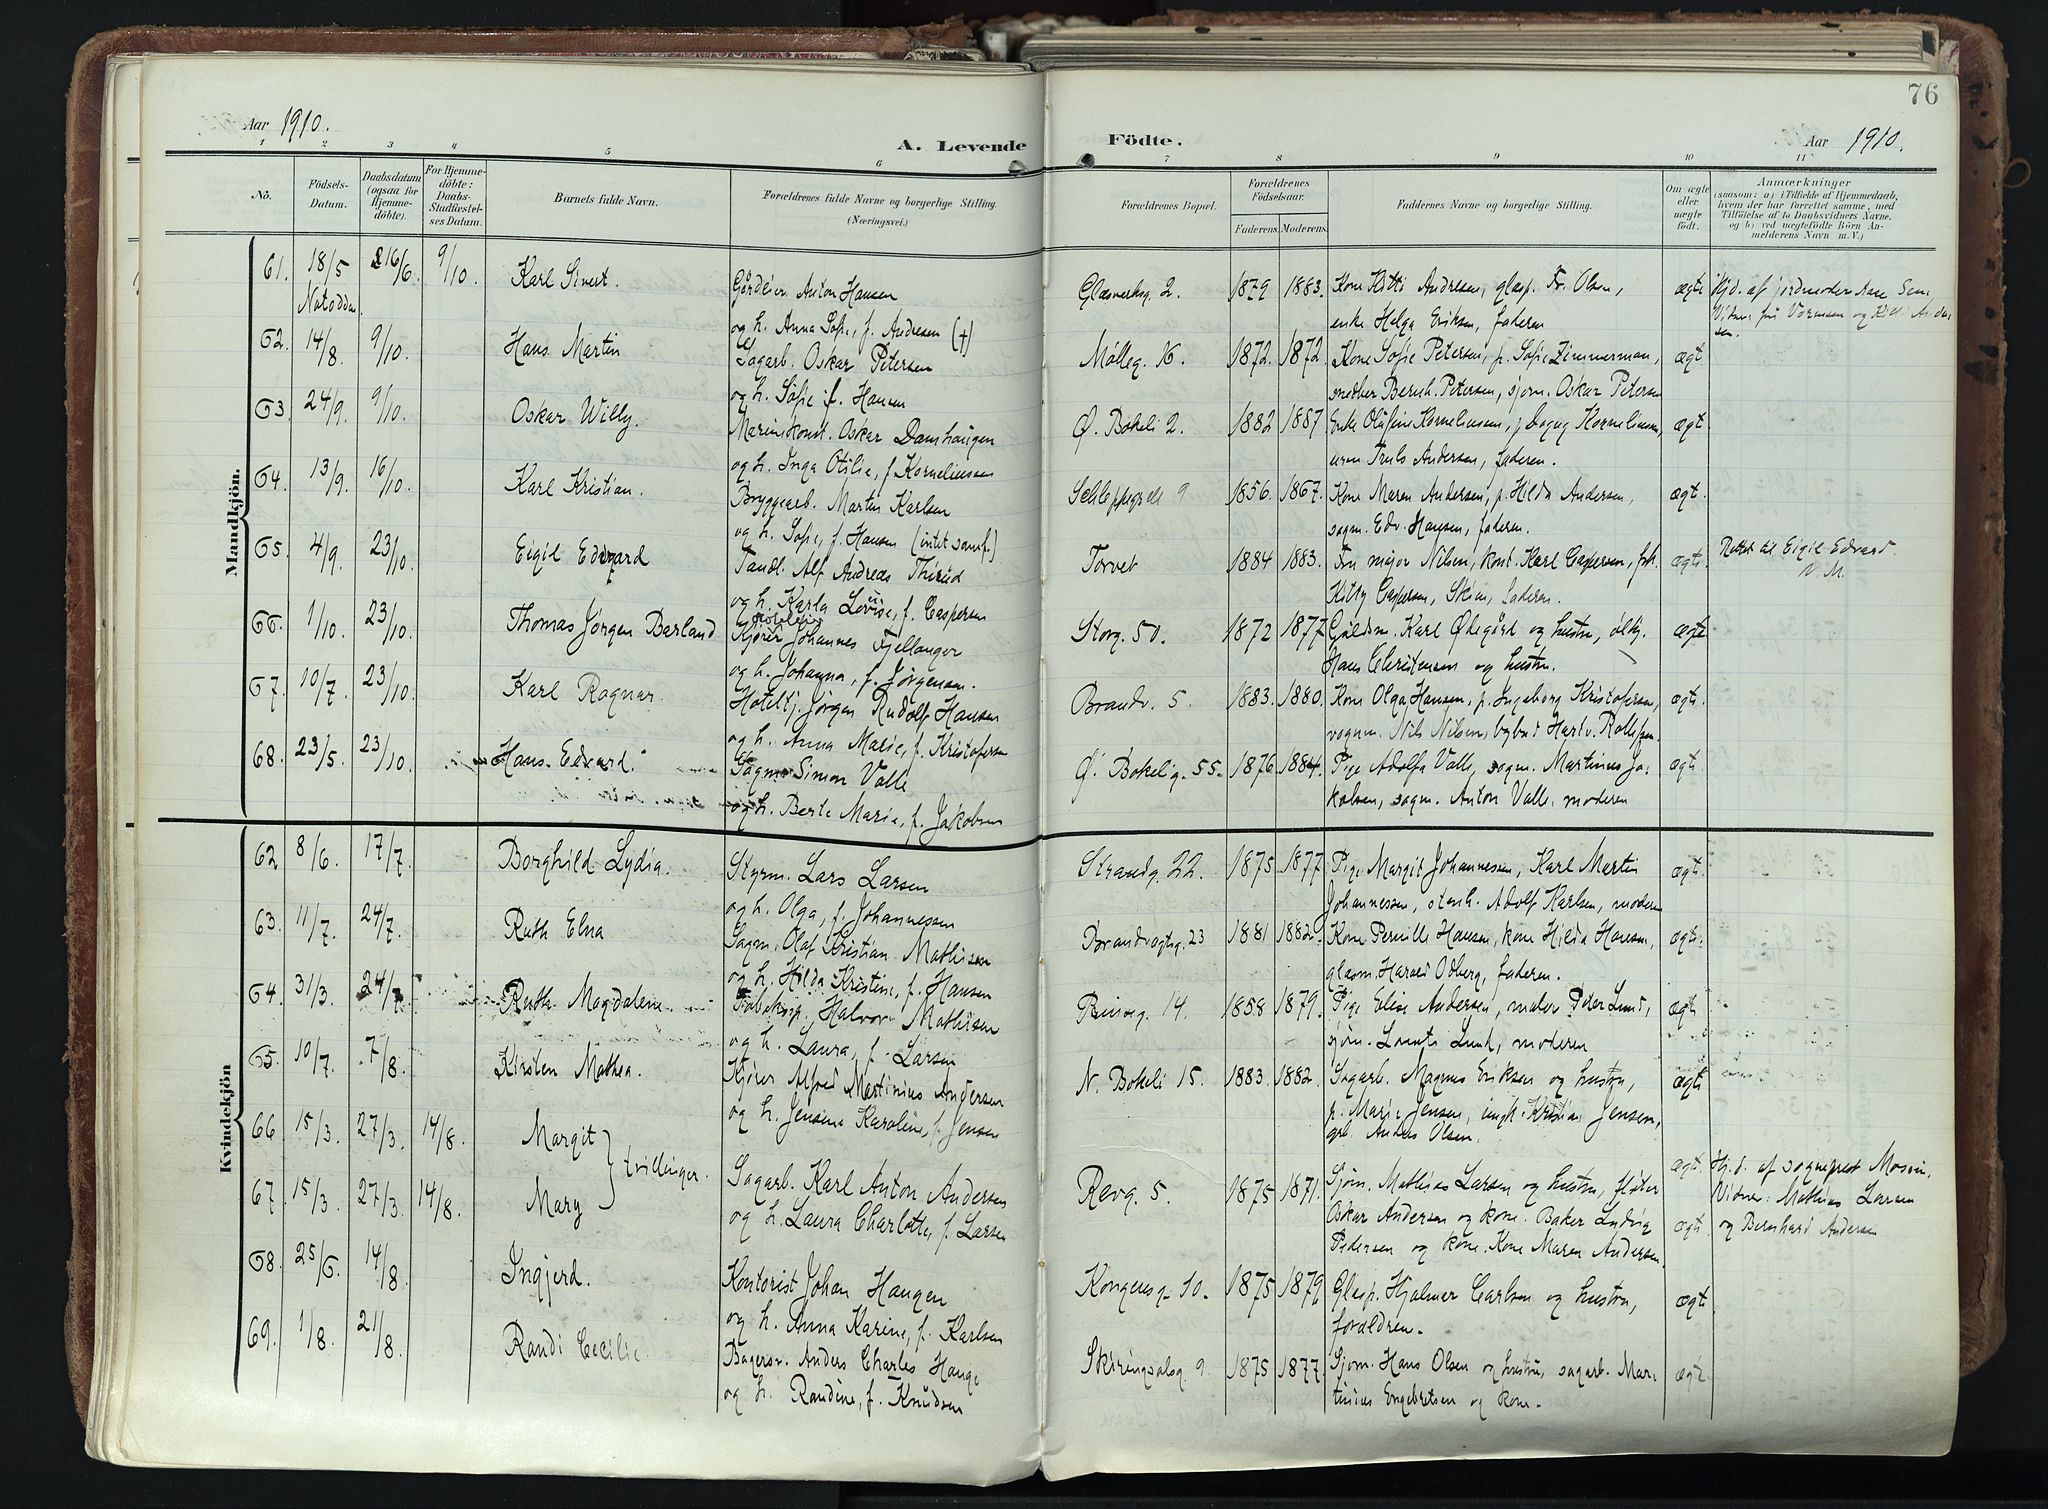 76
Aar 1910.
A. Levende Födte.
Aar 1910.
1 2 3 4 5 6 7 8 9 10 11
No. Födsels-Datum. Daabsdatum (ogsaa for Hjemme-döbte). For Hjemme-döbte: Daabs-Stadfæstel-ses Datum. Barnets fulde Navn. Forældrenes fulde Navne og borgerlige Stilling. (Næringsvei.) Forældrenes Bopæl. Forældrenes Födselsaar. Faderens. Moderens. Faddernes Navne og borgerlige Stilling. Om ægte eller uægte födt. Anmærkninger (saasom: a) i Tilfælde af Hjemmedaab, hvem der har forrettet samme, med Tilföielse af to Daabsvidners Navne. og b) ved uægtefödte Börn An-melderens Navn m. V.)
Mandkjön.
61. 18/5 16/6. 9/10. Karl Sivert. Gårdeier Anton Hansen Glasverksg. 2. 1879 1883. Kone Kitti Andresen, glasp. Fr. Olsen, ægte Hjd. af jordmoder Aase Sem
Notodden. og h. Anna Sofie, f. Andresen (+) enke Helga Eriksen, faderen
62. 14/8. 9/10. Hans Martin Sagarb. Oskar Petersen Mølleg. 16. 1872. 1872. Kone Sofie Petersen, p. Sofie Zimmerman, ægt.
og h. Sofie f. Hansen snedker Bernh. Petersen, sjøm. Oskar Petersen
63. 24/9. 9/10. Oskar Willy. Marinekonst. Oskar Damhaugen Ø. Bøkeli 2. 1882 1887 Enke Olufine Korneliussen, p. Dagny Korneliussen, ægt
og h. Inga Otilie, f. Korneliussen urm Truls Andersen, faderen.
64. 13/9. 16/10. Karl Kristian. Bryggearb. Martin Karlsen 9 1856. 1867. Kone Maren Andersen, p. Hilda Andersen, ægt.
og h. Sofie, f. Hansen (intet samf.) sagm. Edv. Hansen, faderen.
65. 4/9. 23/10. Eigil Edvard Tandl. Alf Andreas Thirud Torvet 1884 1883. Fru major Nilsen, kont. Karl Caspersen, frk. ægte. Rettet til Eigil Edvard.
og h. Karla Lovise, f. Caspersen Kitty Caspersen, Skien, faderen.
66. 1/10. 23/10. Thomas Jørgen Barland Kjører Johannes Fjellanger Storg. 50. 1872 1877 Guldsm. Karl Ødegård og hustru, ægte
og h. Johanna, f. Jørgensen. Hans Christensen og hustru.
67. 10/7. 23/10. Karl Ragnar. Hotellbj. Jørgen Rudolf Hansen Brandv. 5. 1883. 1880. Kone Olga Hansen, p. Ingeborg Kristofersen, ægte.
og h. Anna Marie, f. Kristofersen vognm. Nils Nilsen, bybud Hartv. Rollefsen.
68. 23/5. 23/10. Hans Edvard. Sagm. Simon Valle Ø. Bøkelig. 55. 1876 1884. Pige Adolfa Valle, sagm. Martinius Ja-
og h. Berte Marie, f. Jakobsen kobsen, sagm. Anton Valle, moderen ægte
Kvindekjön
62 8/6. 17/7. Borghild Lydia. Styrm. Lars Larsen Strandg. 22. 1875 1877 Pige Margit Johannessen, Karl Martin ægte.
og h. Olga, f. Johannessen Johannessen, stenh. Adolf Karlsen, moderen
63. 11/7. 24/7. Ruth Elna Sagm. Olaf Kristian Mathisen Brandvagtsg. 23 1881 1882. Kone Pernille Hansen, kone Hilda Hansen, ægte.
og h. Hilda Kristine, f. Hansen glasm. Harald Odberg, faderen.
64. 31/3. 24/7. Ruth Magdalene Halvor Mathisen 14. 1858 1879. Pige Elise Andersen, maler Peter Lund, ægte
og h. Laura, f. Larsen sjøm. Lorents Lund, moderen
65. 10/7. 7/8. Kirsten Mathea. Kjører Alfred Martinius Andersen N. Bøkeli 15. 1883. 1882. Sagarb. Magnus Eriksen og hustru, ægte
og h. Jensine Karoline, f. Jensen p. Marie Jensen, ungk. Kristian Jensen,
grb. Anders Olsen.
66 15/3. 27/3. 14/8. Margit } tvillinger. ægte. Hj.d. af sogneprest
67. 15/3. 27/3. 14/8. Mary Sagarb. Karl Anton Andersen Revg. 5. 1875 1871. Sjøm. Mathias Larsen og hustru, fløter Vidner: Mathias Larsen
og h. Laura Charlotte, f. Larsen Oskar Andersen og kone. Baker Ludvig ægte. og Bernhard Andersen
Pedersen og kone. Kone Maren Andersen.
68. 25/6. 14/8. Ingjerd. Kontorist Johan Haugen Kongensg. 10. 1875 1879. Glasp. Hjalmar Carlsen og hustru, ægte.
og h. Anna Karine, f. Karlsen forældren.
69. 1/8. 21/8. Randi Cecilie. Bagersv. Anders Charles Hauge Skiringsalsg. 9. 1875 1877. Sjøm. Hans Olsen og hustru, sagarb. Mar- ægte.
og h. Randine, f. Knudsen tinius Engebretsen og kone.